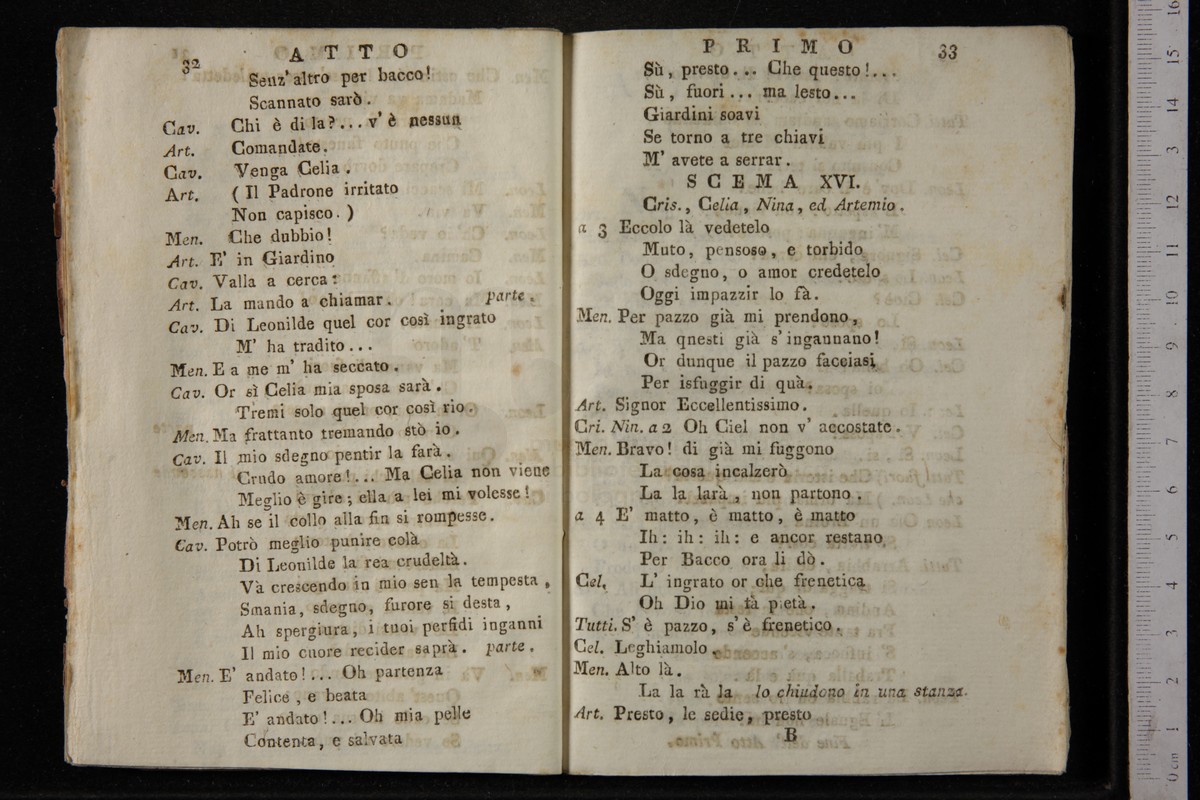 32
ATTO
Senz' altro per bacco!
Scannato sarò.
Cav. Chi è di la?... v' è nessun
Art. Comandate.
Cav. Venga Celia.
Art. ( Il Padrone irritato
Non capisco. )
Men. Che dubbio!
Art. E' in Giardino
Cav. Valla a cerca:
Art. La mando a chiamar. parte.
Cav. Di Leonilde quel cor così ingrato
M' ha tradito...
Men. E a me m' ha seccato.
Cav. Or sì Celia mia sposa sarà.
Tremi solo quel cor così rio.
Men. Ma frattanto tremando stò io.
Cav. Il mio sdegno pentir la farà.
Crudo amore!... Ma Celia non viene
Meglio è gire; ella a lei mi volesse!
Men. Ah se il collo alla fin si rompesse.
Cav. Potrò meglio punire colà
Di Leonilde la rea crudeltà.
Và crescendo in mio sen la tempesta,
Smania, sdegno, furore si desta,
Ah spergiura, i tuoi perfidi inganni
Il mio cuore recider saprà. parte.
Men. E' andato!... Oh partenza
Felice, e beata
E' andato!... Oh mia pelle
Contenta, e salvata
PRIMO
33
Sù, presto... Che questo!...
Sù, fuori... ma lesto...
Giardini soavi
Se torno a tre chiavi
M' avete a serrar.
SCEMA XVI.
Cris., Celia, Nina, ed Artemio.
a 3 Eccolo là vedetelo
Muto, pensoso, e torbido
O sdegno, o amor credetelo
Oggi impazzir lo fà.
Men. Per pazzo già mi prendono,
Ma qnesti già s' ingannano!
Or dunque il pazzo facciasi
Per isfuggir di quà.
Art. Signor Eccellentissimo.
Cri. Nin. a 2 Oh Ciel non v' accostate.
Men. Bravo! di già mi fuggono
La cosa incalzerò
La la larà, non partono.
a 4 E' matto, è matto, è matto
Ih: ih: ih: e ancor restano
Per Bacco ora li dò.
Cel. L' ingrato or che frenetica
Oh Dio mi fà pietà.
Tutti. S' è pazzo, s' è frenetico.
Cel. Leghiamolo.
Men. Alto là.
La la rà la lo chiudono in una stanza.
Art. Presto, le sedie, presto
B